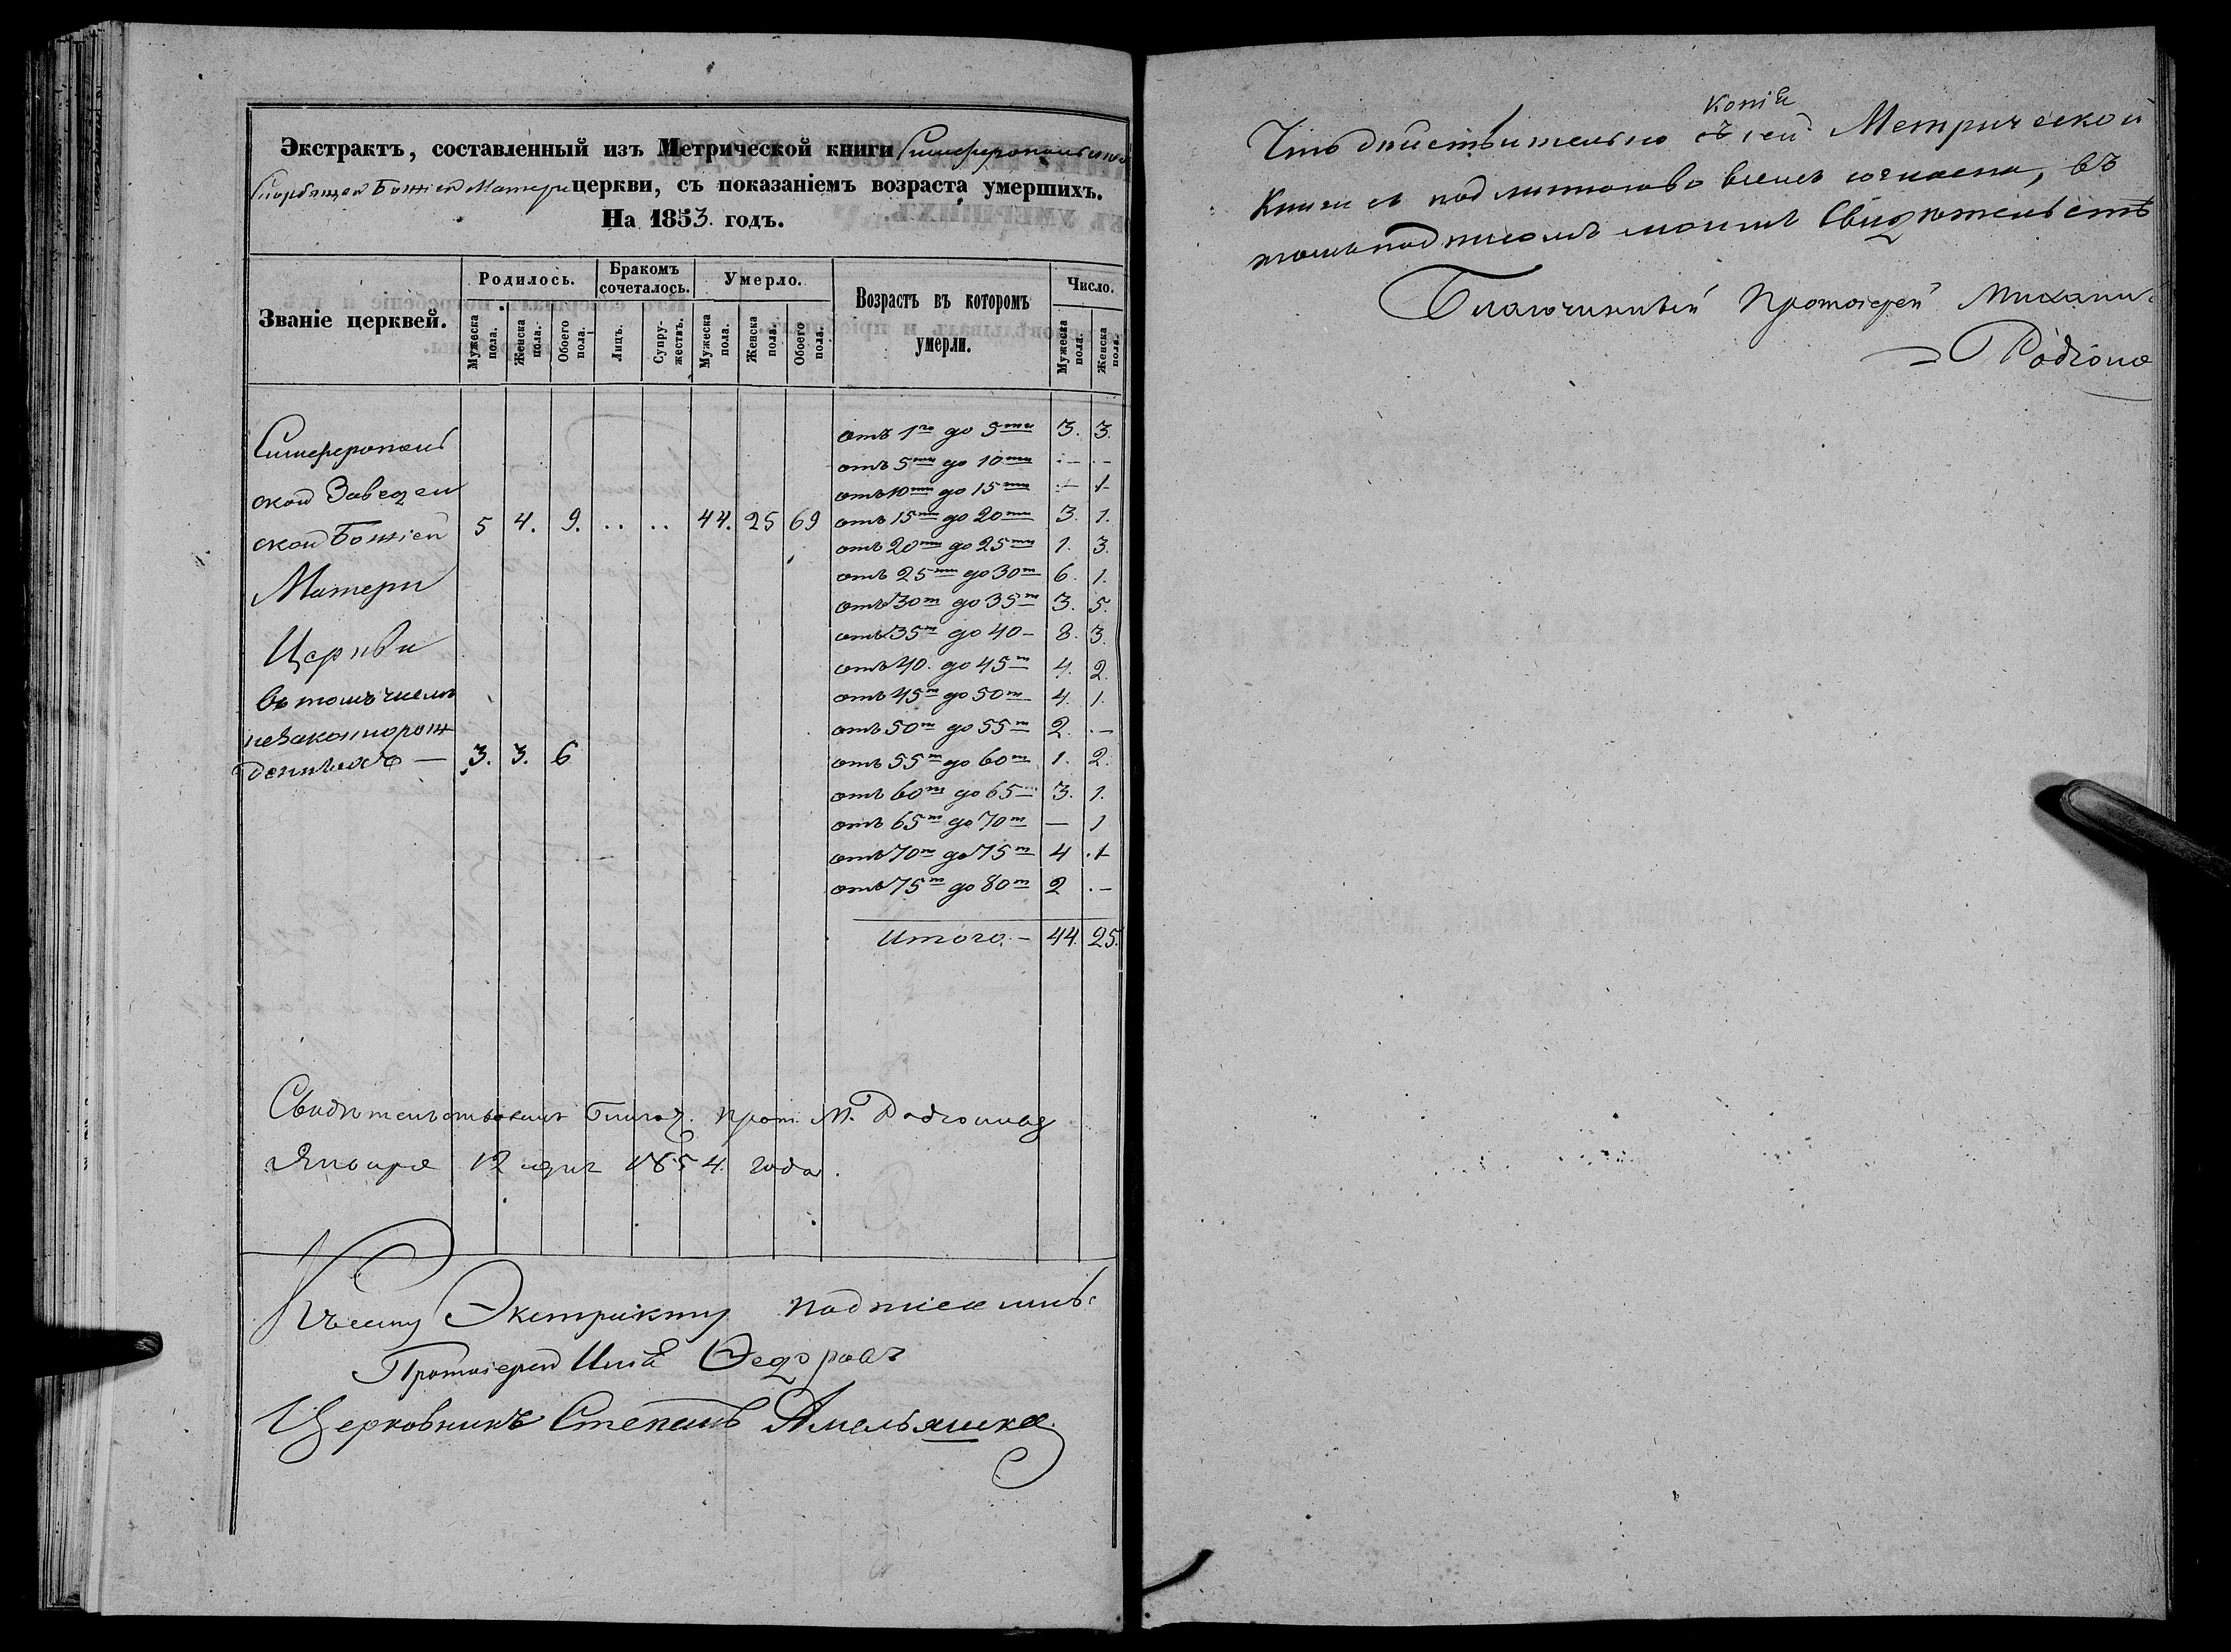 Экстрактъ, составленный изъ Метрической книги Симферопольской
Скорбящей Божіей Матери церкви, съ показаніемъ возраста умершихъ.
На 1853. годъ.
Званіе церквей.
Родилось.
Мужеска пола.
Женска пола.
Обоего пола.
Бракомъ сочеталось.
Лицъ.
Супружествъ.
Умерло.
Мужеска пола.
Женска пола.
Обоего пола.
Возрастъ въ которомъ умерли.
Число.
Мужеска пола.
Женска пола.
Симферополь
ской Заведен
ской Божіей
Матери
Церкви
5 4. 9. .. .. 44. 25 69
въ томъ числѣ
незаконнорож
денныхъ — 3. 3. 6
отъ 1го до 5ти 3. 3.
отъ 5ти до 10ти .— .—
отъ 10ти до 15ти .— 1
отъ 15ти до 20ти 3. 1.
отъ 20ти до 25ти 1. 3.
отъ 25ти до 30т 6. 1.
отъ 30т до 35т 3. 5.
отъ 35т до 40 – 8. 3.
отъ 40. до 45т 4. 2.
отъ 45т до 50т 4. 1.
отъ 50т до 55т 2. .—
отъ 55т до 60т 1. 2.
отъ 60т до 65 – 3. 1.
отъ 65т до 70т — 1
отъ 70т до 75т 4 .1
отъ 75т до 80т 2 .—
Итого. – 44. 25.
Свидѣтельствовалъ Благоч. Прот. М. Родіоновъ
Января 12 дня 1854. года.
Къ сему Экстракту подписались
Протоіерей Илія Федоровъ
Церковникъ Степанъ Амельянка
Что дѣйствительно копія съ сей Метрической
Книги съ подлинною во всемъ согласна, въ
томъ подписомъ моимъ Свидѣтельств
Благочинный Протоіерей Михаил
Родіоно